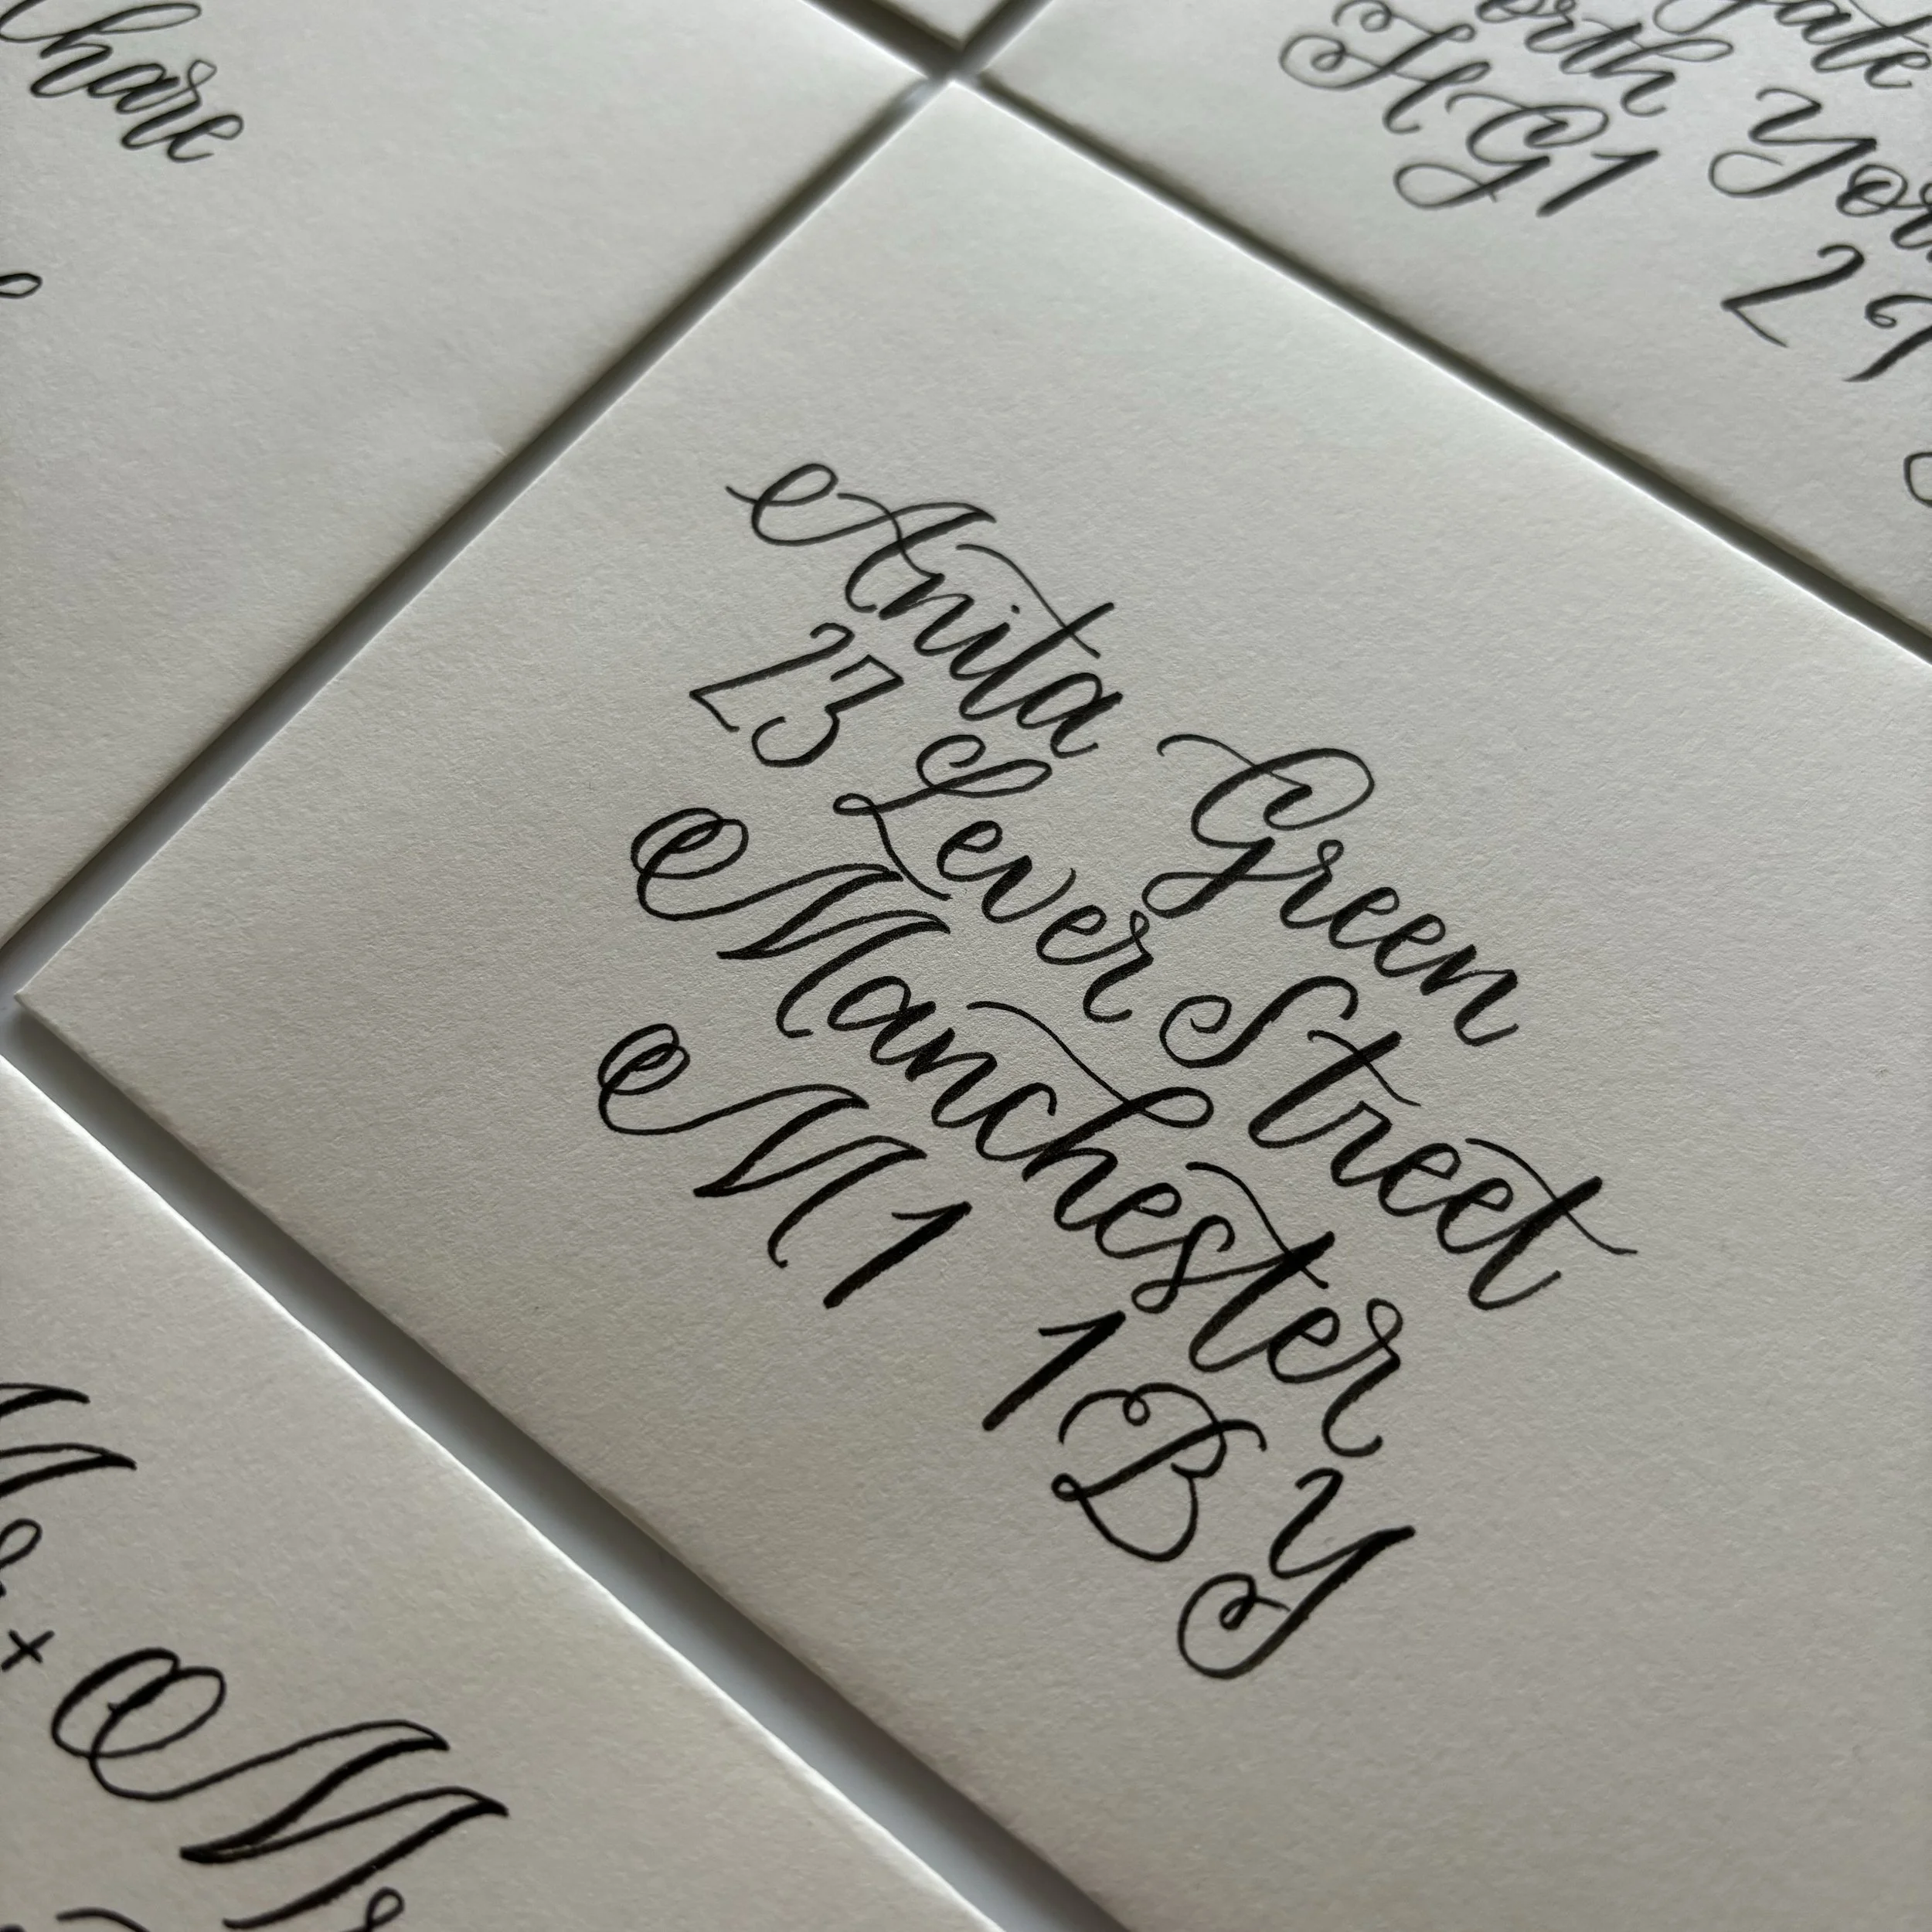 hare
gate
orth York
HG1 2
Anita Green
23 Lever Street
Manchester
M1 1BY
+ Mr